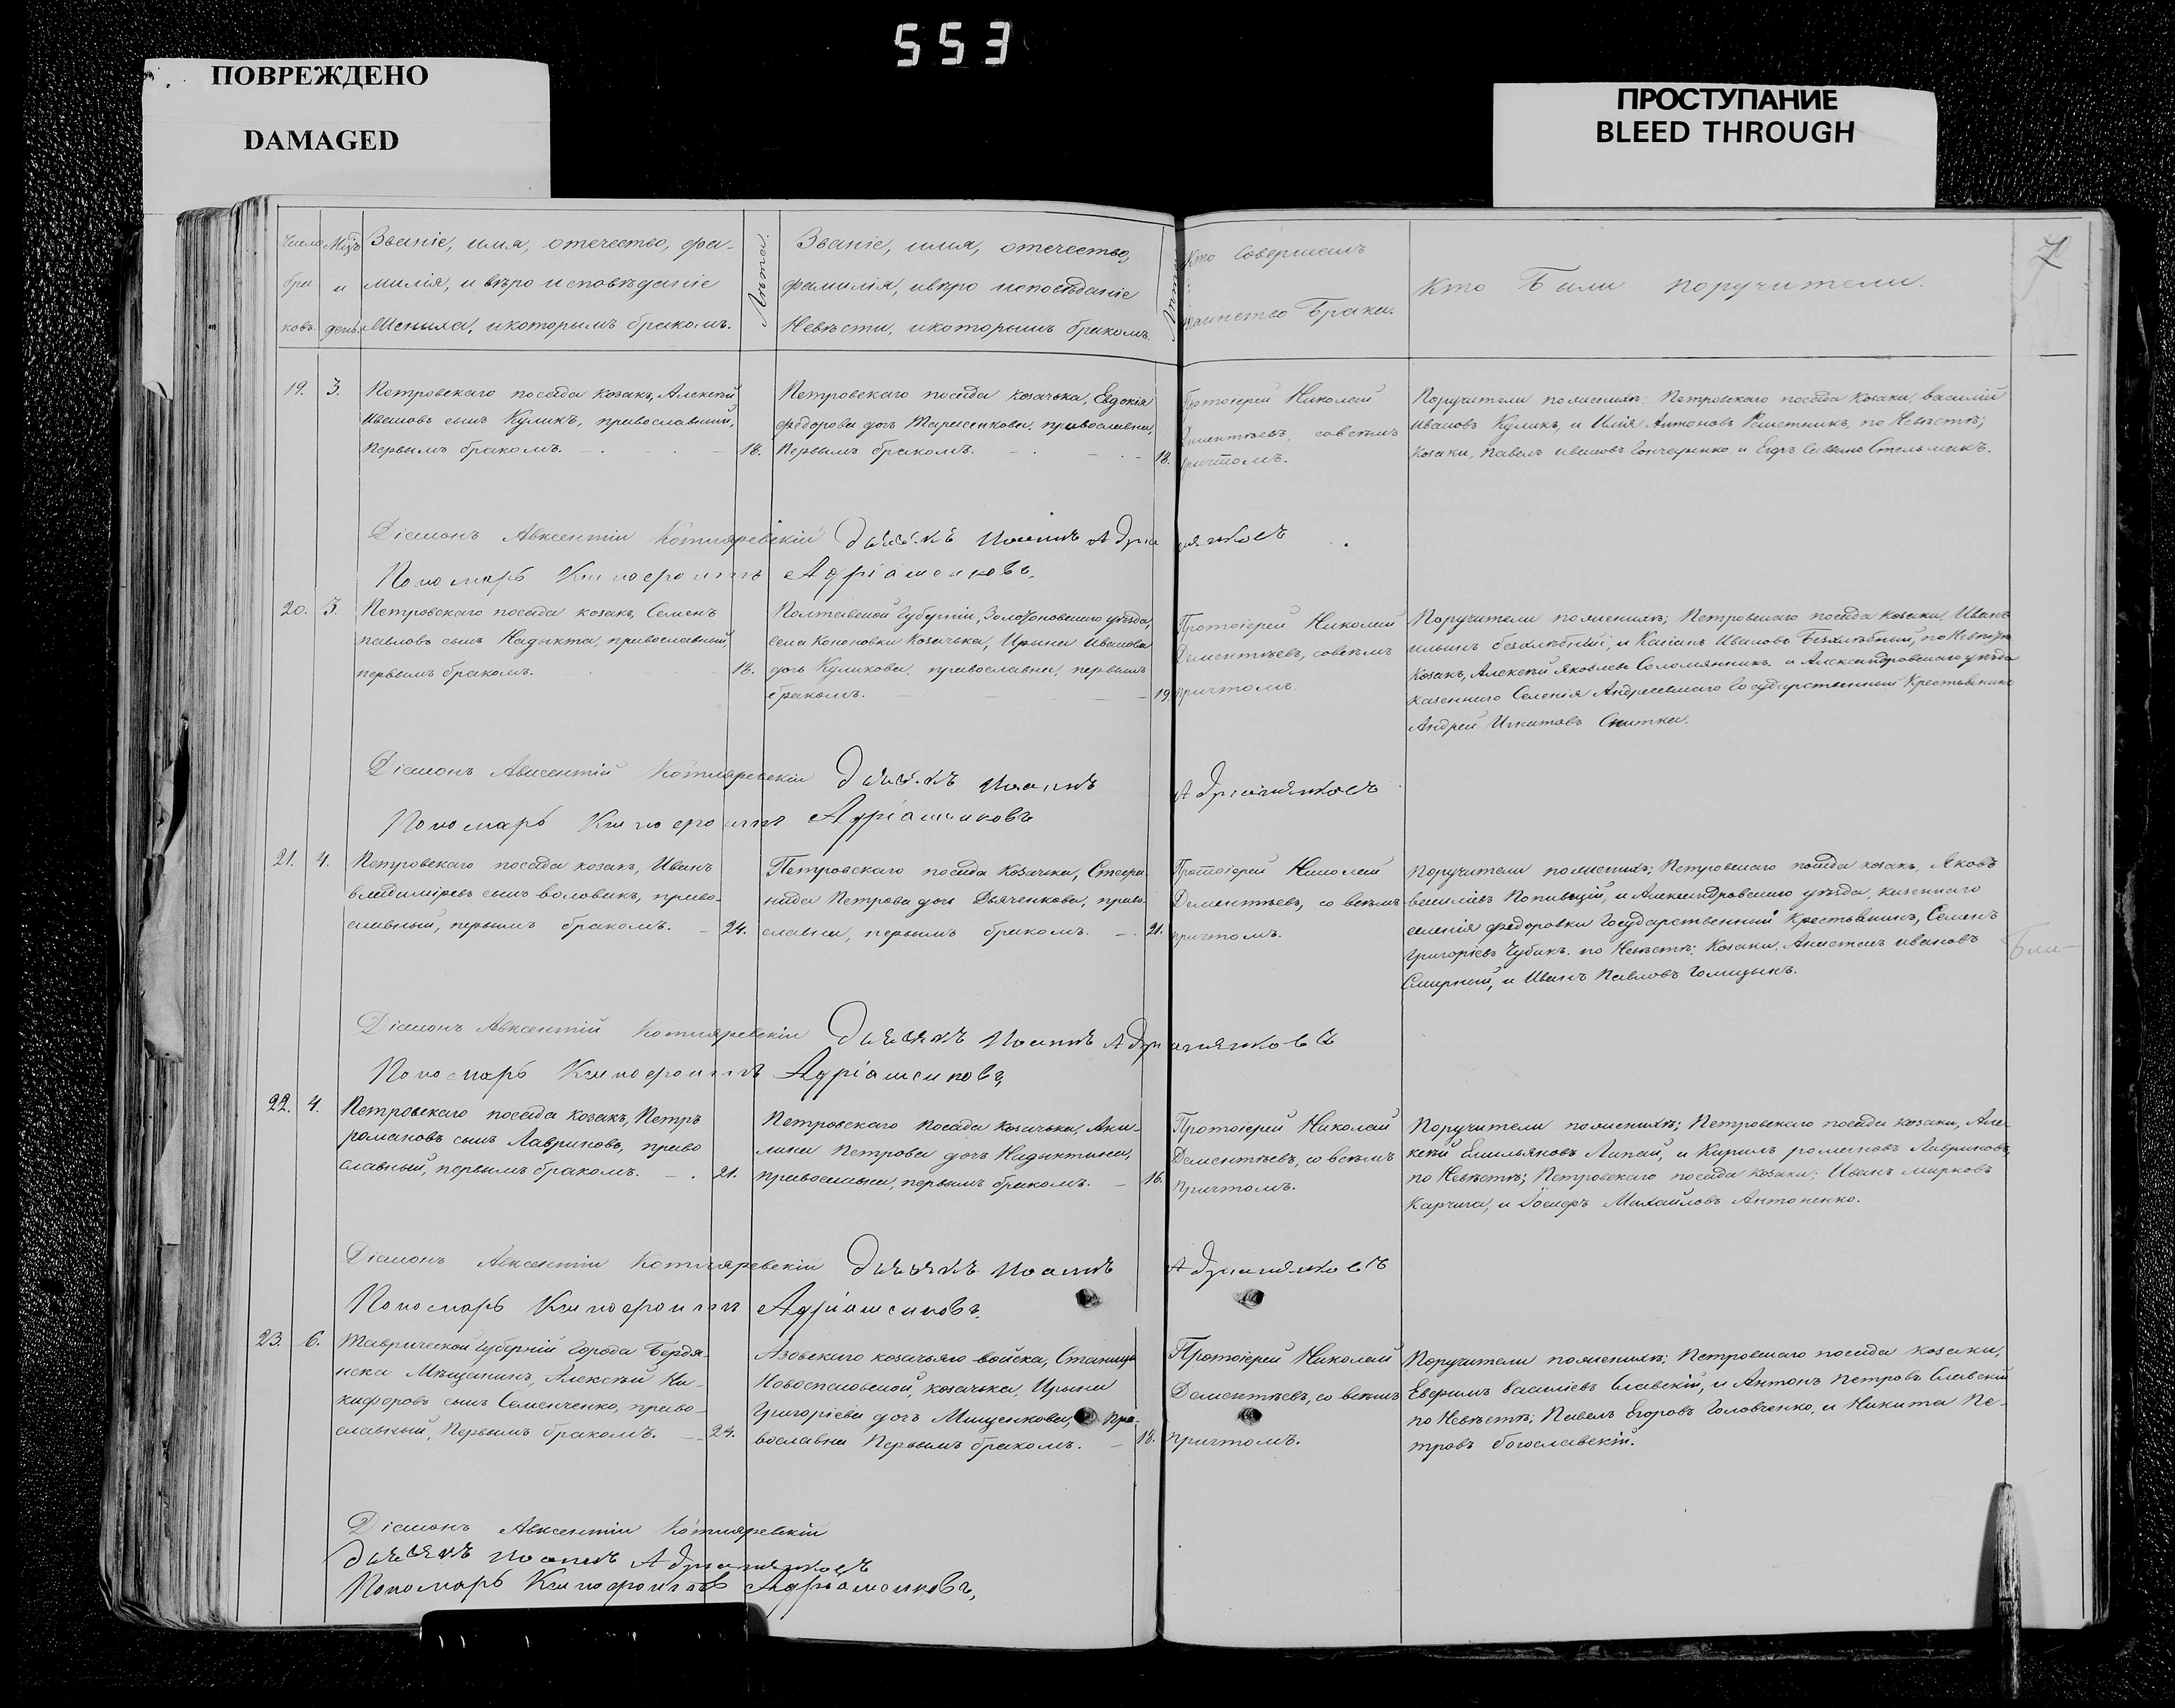 553
ПОВРЕЖДЕНО
DAMAGED
ПРОСТУПАНИЕ
BLEED THROUGH
7
Число бра ковъ.
Мцъ и день.
Званіе, имя, отечество, фа-
милія, и вѣроисповѣданіе
Жениха, икоторымъ бракомъ.
Лѣта.
Званіе, имя, отечество,
фамилія, ивѣро исповѣданіе
Невѣсты, икоторымъ бракомъ.
Лѣта
Кто Совершалъ
таинство Брака.
Кто Были поручители.
19. 3.
Петровскаго посада козакъ, Алексѣй
Ивановъ сынъ Куликъ, православный,
первымъ бракомъ. 18.
Петровскаго посада козачька, Евдокія
Федорова дочь Тарасенкова, православна,
Первымъ бракомъ. 18.
Протоіерей Николай
Дементѣевъ, совсѣмъ
причтомъ.
Поручители поженихѣ: Петровскаго посада козаки, василій
ивановъ Куликъ, и Илія Антоновъ Решетникъ, по Невѣстѣ;
Козаки, Павелъ ивановъ Гончаренко, и Стельмахъ.
Діаконъ Авксентій Котляревскій Дьячекъ Иоаннъ Адріяшковъ
Пономарь Ксинофонтъ Адріашенковъ.
20. 3.
Петровскаго посада козакъ, Семенъ
павловъ сынъ Надыкта, православный,
первымъ бракомъ. 18.
Полтавской Губерніи, Золотоновскаго уѣзда,
села Кононовки Козачька, Ирына Иванова
дочь Куликова, православна, первымъ
бракомъ. 19.
Протоіерей Николай
Дементѣевъ, совсѣмъ
причтомъ.
Поручители поженихѣ; Петровскаго посада козаки, Иванъ
ильинъ безхлѣбный, и Касіанъ Ивановъ Безхлѣбный, по Невѣстѣ
Козакъ, Алексѣй Яковлевъ Соломянникъ, и Александровскаго уѣзда
казеннаго Селенія Андреевкаго Государственный Крестьянинъ
Андрей Никитовъ Снитка.
Діаконъ Авксентій Котляревскій Дьячекъ Иоаннъ Адріяшковъ
Пономарь Ксинофонтъ Адріашенковъ
21. 4.
Петровскаго посада козакъ, Иванъ
владиміровъ сынъ воловикъ, право-
славный, первымъ бракомъ. 24.
Петровскаго посада Козачька, Стефа-
нида Петрова дочь Дьяченкова, право-
славна, первымъ бракомъ. 21.
Протоіерей Николай
Дементѣевъ, со всѣмъ
причтомъ.
поручители поженихѣ; Петровскаго посада козакъ, Яковъ
василіевъ Попивщій, и Александровскаго уѣзда, казеннаго
селенія федоровки Государственный Крестьянинъ, Семенъ
Григоріевъ Чубикъ. по Невѣстѣ: Козаки, Анастасъ ивановъ
Смирный, и Иванъ Павловъ Голицынъ.
Діаконъ Авксентій Котляревскій Дьячекъ Иоаннъ Адріяшковъ
Пономарь Ксинофонтъ Адріашенковъ,
22. 4.
Петровскаго посада козакъ, Петръ
романовъ сынъ Лавриковъ, право
славный, первымъ бракомъ. 21.
Петровскаго посада козачька, Аки-
лина Петрова дочь Надыктина,
православна, первымъ бракомъ. 16.
Протоіерей Николай
Дементѣевъ, со всѣмъ
причтомъ.
Поручители поженихѣ; Петровскаго посада козаки, Але-
ксѣй Емильяновъ Липай, и Кирилъ романовъ Лавриковъ,
по Невѣстѣ; Петровскаго посада козаки; Иванъ марковъ
Карчига, и Іосифъ Михайловъ Антоненко.
Діаконъ Авксентій Котляревскій Дьячекъ Иоаннъ Адріяшковъ
Пономарь Ксинофонтъ Адріашенковъ.
23. 6.
Таврической Губерніи Города Бердя-
нска Мѣщанинъ, Алексѣй Ни-
кифоровъ сынъ Семенченко, право-
славный, Первымъ бракомъ. 24.
Азовскаго козачьяго войска, Станицы
Новоспасовской, козачька, Ирына
Григоріева дочь Мищенкова, Пра-
вославна Первымъ бракомъ. 18.
Протоіерей Николай
Дементѣевъ, со всѣмъ
причтомъ.
Поручители поженихѣ; Петровскаго посада козаки,
Евфимъ василіевъ Славскій, и Антонъ Петровъ Славскій
по Невѣстѣ; Павелъ Егоровъ Головченко, и Никита Пе-
тровъ богославскій.
Діаконъ Авксентій Котляревскій
Дьячекъ Иоаннъ Адріяшковъ
Пономарь Ксинофонтовъ Адріашенковъ,